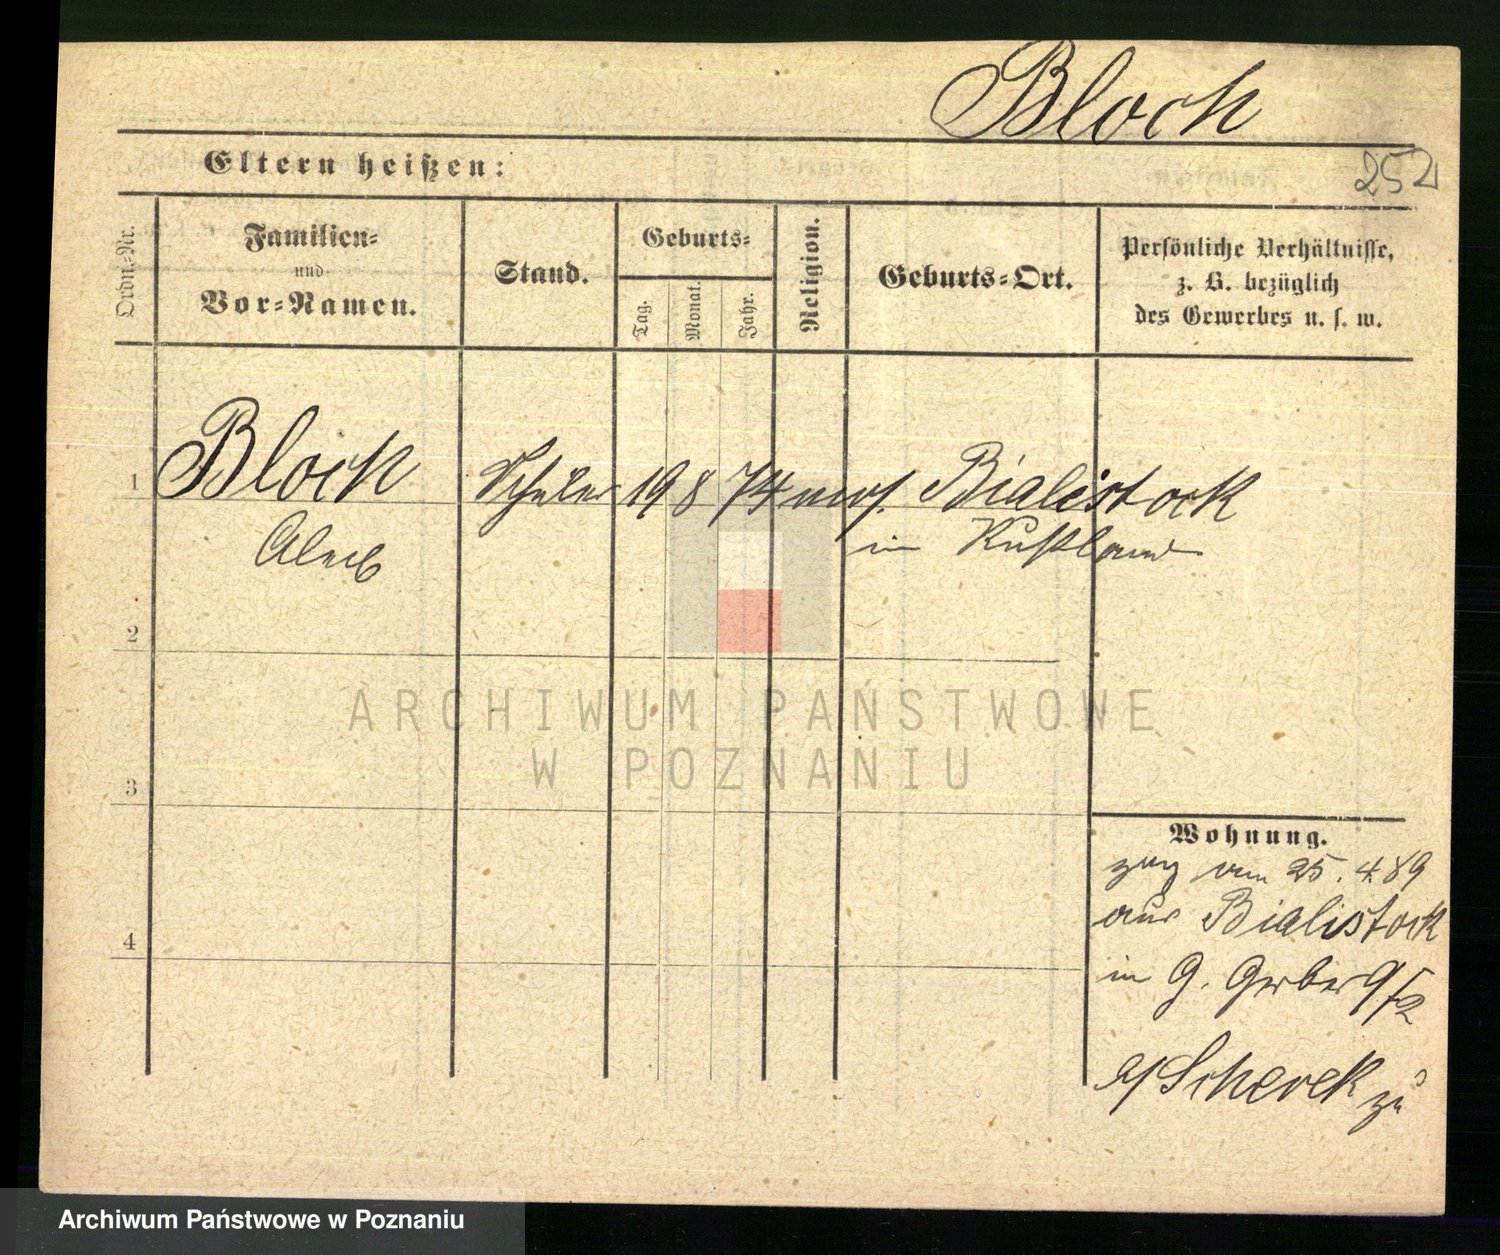 Block
252
Eltern heißen:
Ordn.-Nr.
Familien-
und
Vor-Namen.
Stand.
Geburts-
Tag.
Monat.
Jahr.
Religion.
Geburts-Ort.
Persönliche Verhältnisse,
z. B. bezüglich
des Gewerbes u. s. w.
1 Block Schüler 19 8 74 mos. Bialistock
in Rußland
2
3
4
Wohnung.
zug vom 25. 4. 89
aus Bialistock
in G. Gerber 9/2
b/ Scherek zu
ARCHIWUM PAŃSTWOWE
W POZNANIU
Archiwum Państwowe w Poznaniu